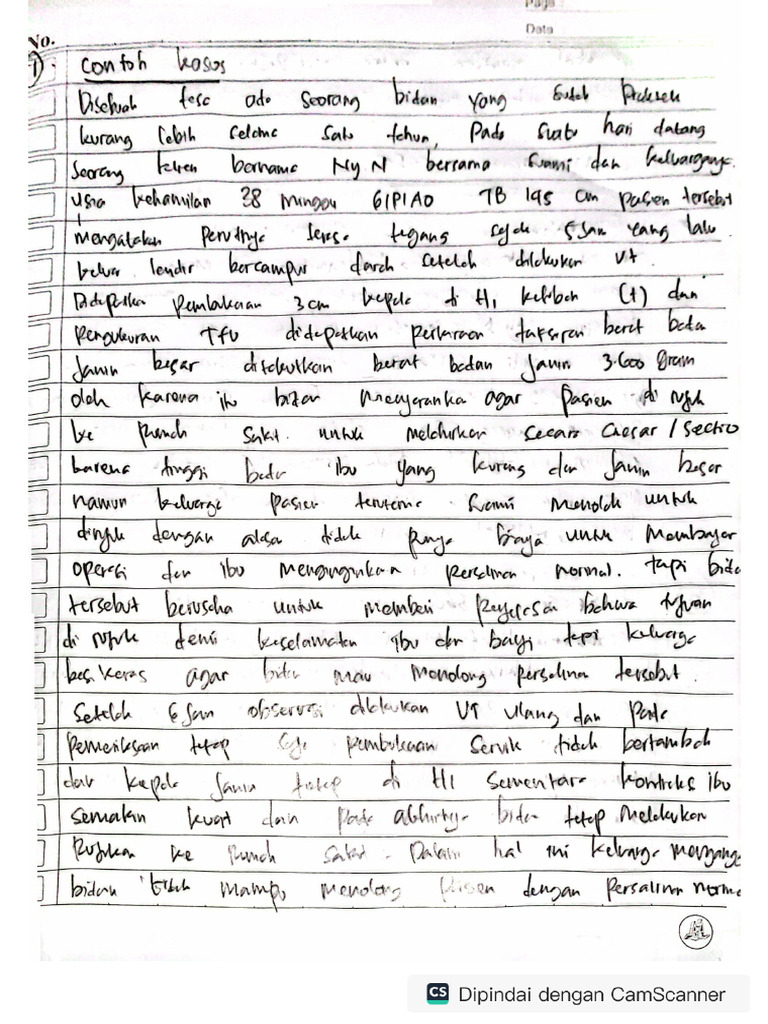 Page
Date
No.
1) Contoh kasus
Disebuah desa ada seorang bidan yang sudah Praktek
kurang lebih selama satu tahun, Pada suatu hari datang
seorang klien bernama Ny N bersama suami dan keluarganya.
usia kehamilan 38 minggu G1P1A0 TB 145 cm pasien tersebut
mengatakan perutnya terasa tegang sejak 5 Jam yang lalu
keluar lendir bercampur darah setelah dilakukan VT
Didapatkan pembukaan 3 cm kepala di H1 ketuban (+) dan
Pengukuran TFU didapatkan perkiraan taksiran berat bada
Janin besar disebutkan berat badan Janin 3.600 gram
oleh karena itu bidan menyarankan agar pasien di rujuk
ke Rumah Sakit untuk melahirkan secara Caesar / Sectio
karena tinggi bada ibu yang kurang dan Janin besar
namun keluarga pasien terutama suami menolak untuk
dirujuk dengan alasan tidak punya biaya untuk membayar
operasi dan ibu menginginkan persalinan normal. tapi bida
tersebut berusaha untuk memberi penjelasan bahwa tujuan
di rujuk demi keselamatan ibu dan bayi tapi keluarga
bersikeras agar bidan mau menolong persalinan tersebut.
Setelah 6 Jam observasi dilakukan VT ulang dan pada
pemeriksaan tetap saja pembukaan servik tidak bertambah
dan kepala Janin tetap di H1 Sementara kontraksi ibu
semakin kuat dan pada akhirnya bidan tetap melakukan
Rujukan ke Rumah Sakit. Dalam hal ini keluarga mengangga
bidan tidak mampu menolong pasien dengan persalinan norma
CS Dipindai dengan CamScanner